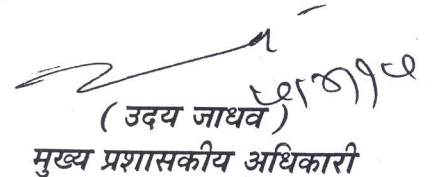 ( उदय जाधव )
मुख्य प्रशासकीय अधिकारी